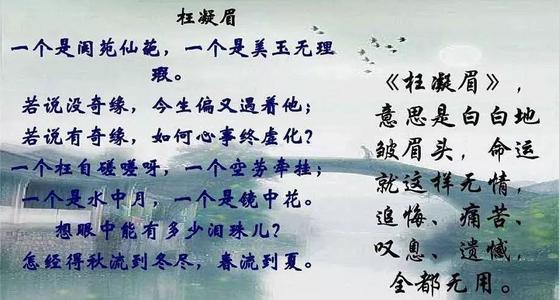 枉凝眉
一个是阆苑仙葩，一个是美玉无理
瑕。
若说没奇缘，今生偏又遇着他；
若说有奇缘，如何心事终虚化？
一个枉自磋嗟呀，一个空劳牵挂；
一个是水中月，一个是镜中花。
想眼中能有多少泪珠儿？
怎经得秋流到冬尽，春流到夏。
《枉凝眉》，
意思是白白地
皱眉头，命运
就这样无情，
追悔、痛苦、
叹息、遗憾，
全都无用。